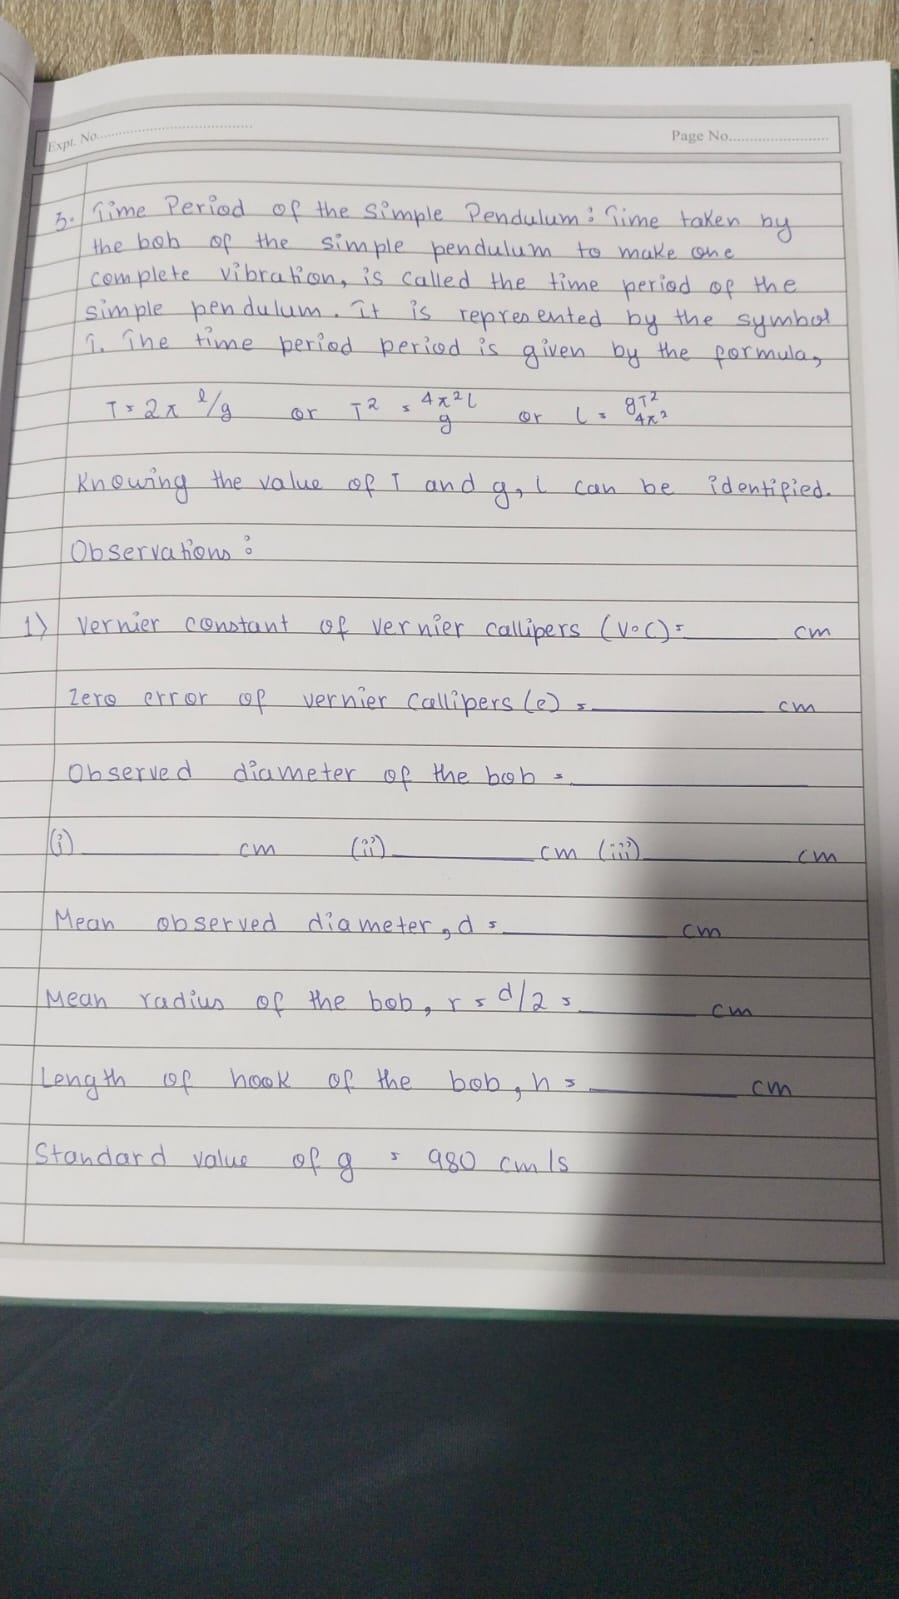 Expt. No.
Page No.
3. Time Period of the Simple Pendulum: Time taken by
the bob of the simple pendulum to make one
complete vibration, is called the time period of the
simple pendulum. It is represented by the symbol
T. The time period period is given by the formula,
T = 2π l/g or T² = 4π²l/g or l = gT²/4π²
Knowing the value of T and g, l can be identified.
Observations:
1) Vernier constant of vernier callipers (V.C) = ______ cm
Zero error of vernier callipers (e) = ______ cm
Observed diameter of the bob = ______
(i) ______ cm (ii) ______ cm (iii) ______ cm
Mean observed diameter, d = ______ cm
Mean radius of the bob, r = d/2 = ______ cm
Length of hook of the bob, h = ______ cm
Standard value of g = 980 cm/s